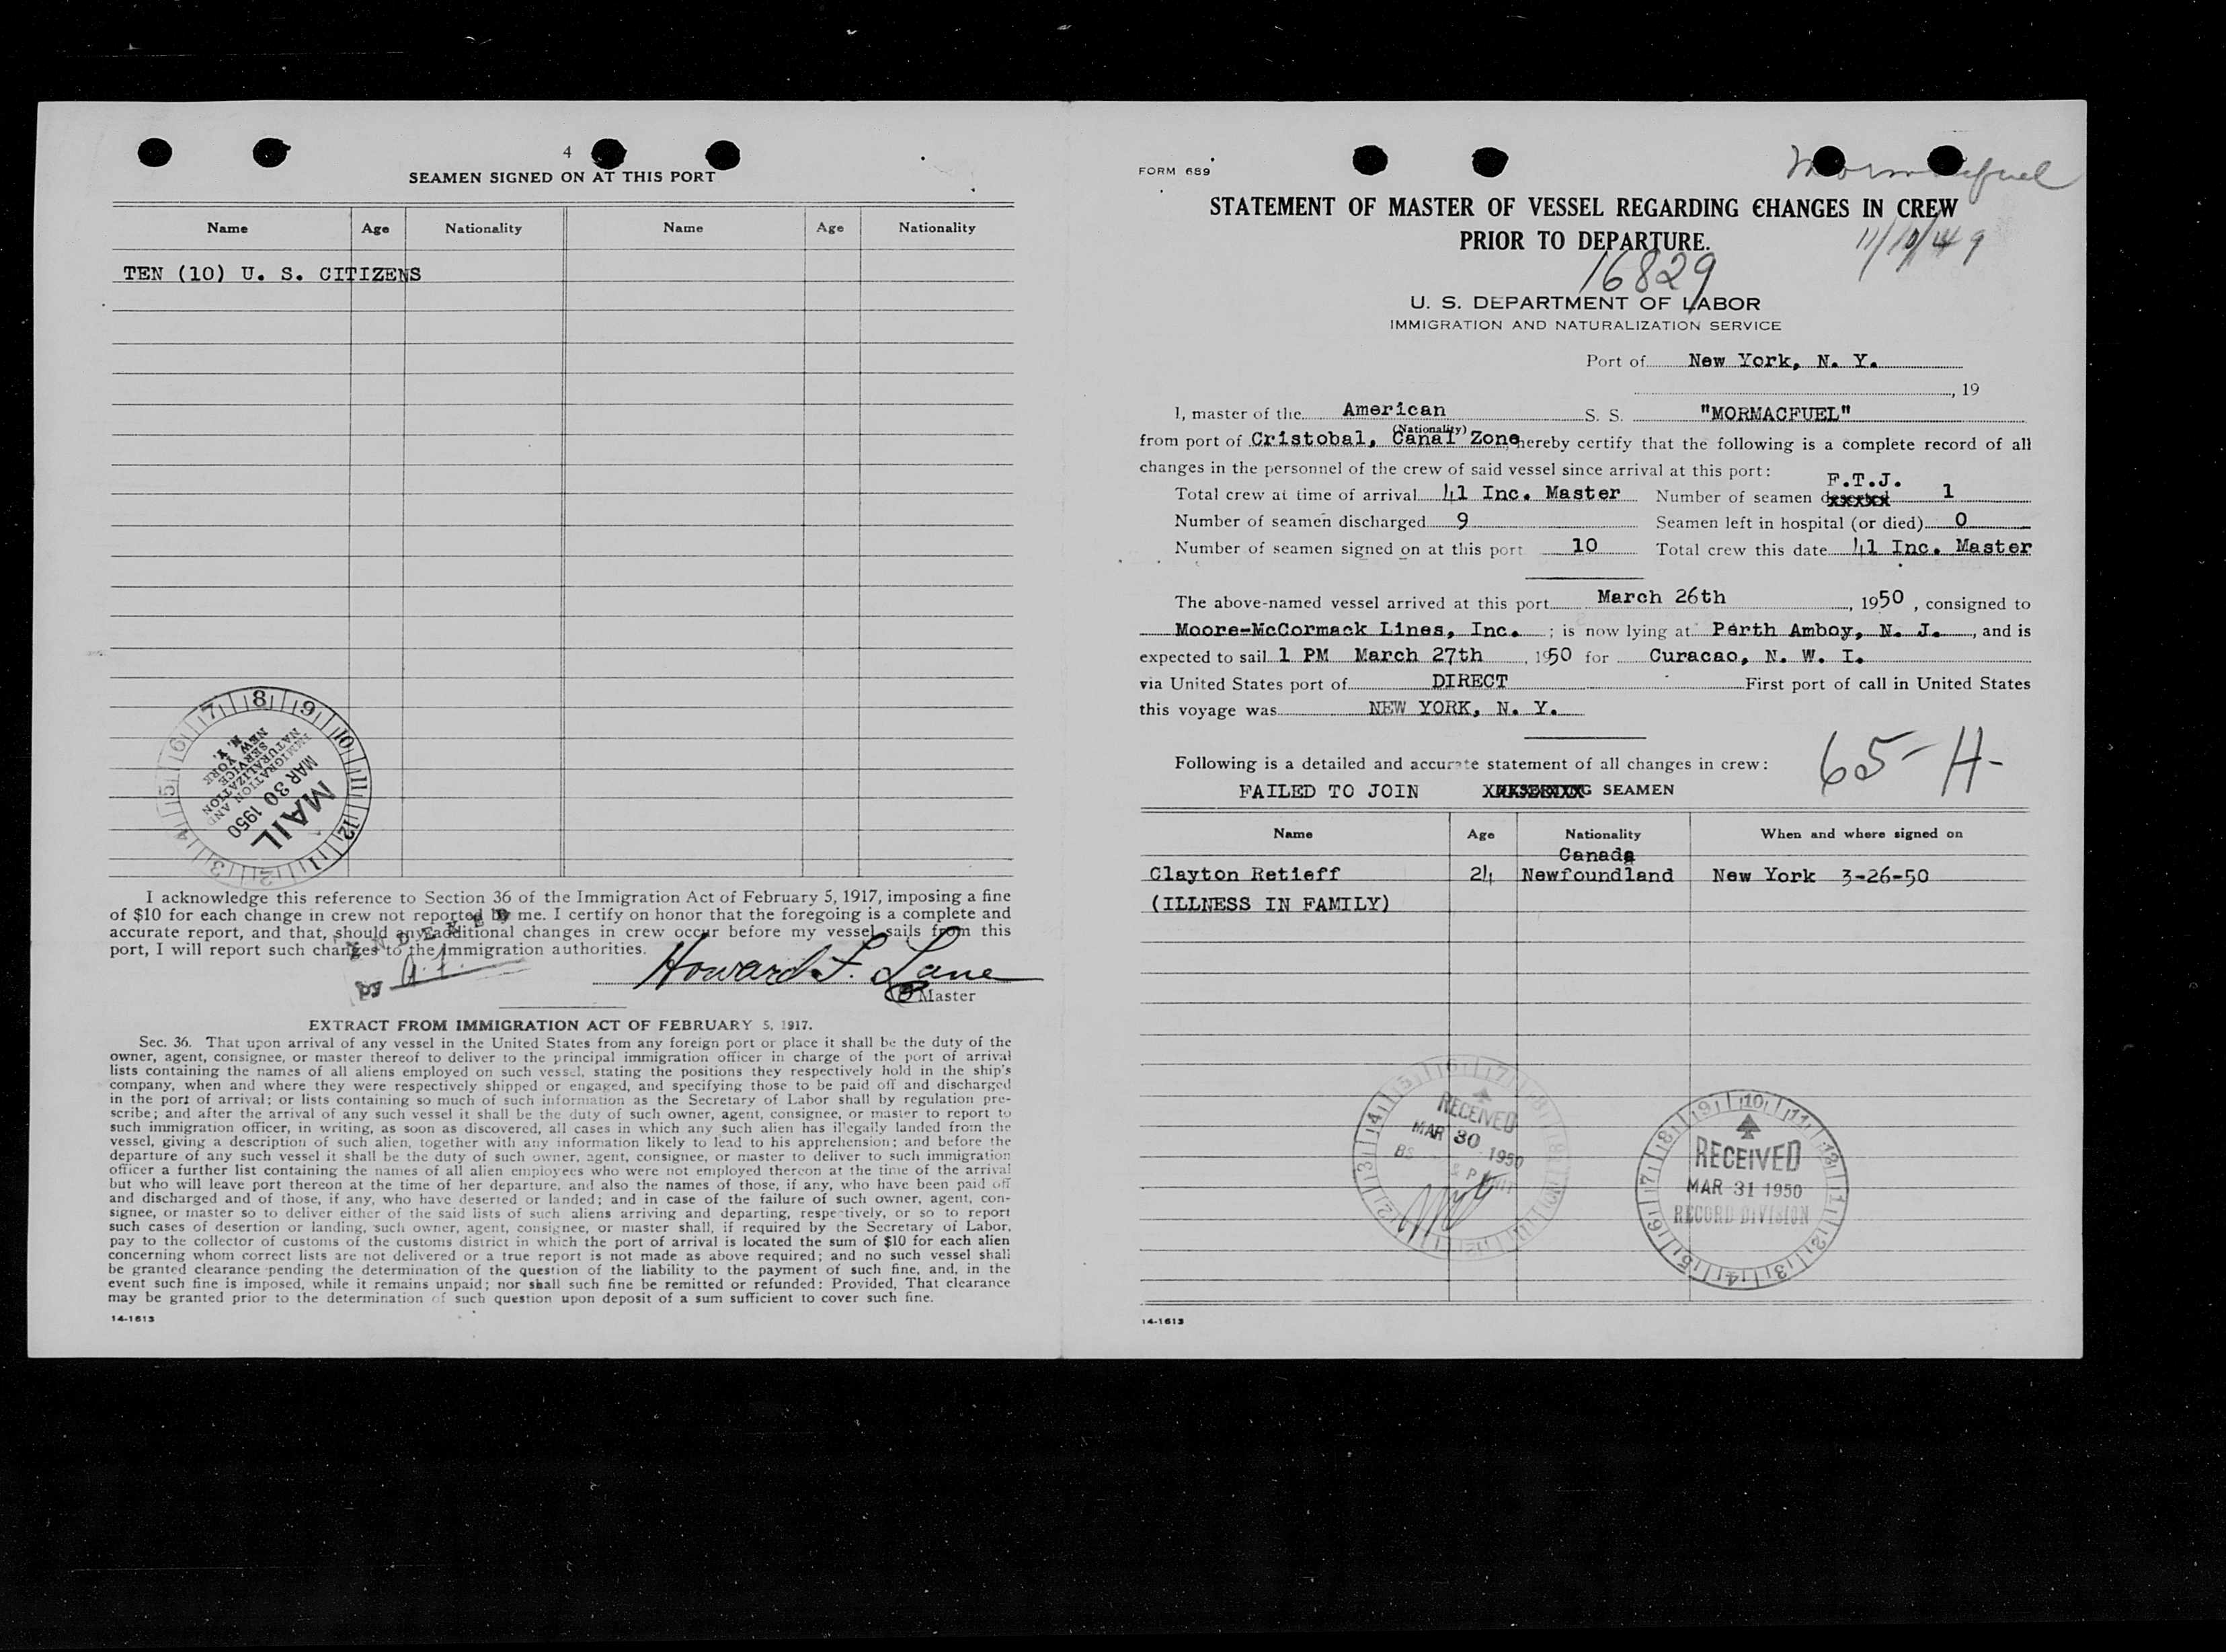 4
SEAMEN SIGNED ON AT THIS PORT
Name Age Nationality Name Age Nationality
TEN (10) U. S. CITIZENS
7 8 9 10 11 12 1 2 3 4 5 6
IMMIGRATION AND
NATURALIZATION
SERVICE
NEW YORK
N. Y.
MAR 30 1950
MAIL
I acknowledge this reference to Section 36 of the Immigration Act of February 5, 1917, imposing a fine
of $10 for each change in crew not reported by me. I certify on honor that the foregoing is a complete and
accurate report, and that, should any additional changes in crew occur before my vessel sails from this
port, I will report such changes to the immigration authorities.
by
Howard F. Lane
Master
EXTRACT FROM IMMIGRATION ACT OF FEBRUARY 5, 1917.
Sec. 36. That upon arrival of any vessel in the United States from any foreign port or place it shall be the duty of the
owner, agent, consignee, or master thereof to deliver to the principal immigration officer in charge of the port of arrival
lists containing the names of all aliens employed on such vessel, stating the positions they respectively hold in the ship's
company, when and where they were respectively shipped or engaged, and specifying those to be paid off and discharged
in the port of arrival; or lists containing so much of such information as the Secretary of Labor shall by regulation pre-
scribe; and after the arrival of any such vessel it shall be the duty of such owner, agent, consignee, or master to report to
such immigration officer, in writing, as soon as discovered, all cases in which any such alien has illegally landed from the
vessel, giving a description of such alien, together with any information likely to lead to his apprehension; and before the
departure of any such vessel it shall be the duty of such owner, agent, consignee, or master to deliver to such immigration
officer a further list containing the names of all alien employees who were not employed thereon at the time of the arrival
but who will leave port thereon at the time of her departure, and also the names of those, if any, who have been paid off
and discharged and of those, if any, who have deserted or landed; and in case of the failure of such owner, agent, con-
signee, or master so to deliver either of the said lists of such aliens arriving and departing, respectively, or so to report
such cases of desertion or landing, such owner, agent, consignee, or master shall, if required by the Secretary of Labor,
pay to the collector of customs of the customs district in which the port of arrival is located the sum of $10 for each alien
concerning whom correct lists are not delivered or a true report is not made as above required; and no such vessel shall
be granted clearance pending the determination of the question of the liability to the payment of such fine, and, in the
event such fine is imposed, while it remains unpaid; nor shall such fine be remitted or refunded: Provided, That clearance
may be granted prior to the determination of such question upon deposit of a sum sufficient to cover such fine.
14-1613
FORM 689
Mormacfuel
STATEMENT OF MASTER OF VESSEL REGARDING CHANGES IN CREW
PRIOR TO DEPARTURE.
11/10/49
16829
U. S. DEPARTMENT OF LABOR
IMMIGRATION AND NATURALIZATION SERVICE
Port of New York, N. Y.
, 19
I, master of the American S. S. "MORMACFUEL"
(Nationality)
from port of Cristobal, Canal Zone hereby certify that the following is a complete record of all
changes in the personnel of the crew of said vessel since arrival at this port:
F.T.J.
Total crew at time of arrival 41 Inc. Master Number of seamen deserted 1
Number of seamen discharged 9 Seamen left in hospital (or died) 0
Number of seamen signed on at this port 10 Total crew this date 41 Inc. Master
The above-named vessel arrived at this port March 26th, 1950, consigned to
Moore-McCormack Lines, Inc. ; is now lying at Perth Amboy, N. J., and is
expected to sail 1 PM March 27th, 1950 for Curacao, N. W. I.
via United States port of DIRECT First port of call in United States
this voyage was NEW YORK, N. Y.
65-H-
Following is a detailed and accurate statement of all changes in crew:
FAILED TO JOIN SEAMEN
Name Age Nationality When and where signed on
Canada
Clayton Retieff 24 Newfoundland New York 3-26-50
(ILLNESS IN FAMILY)
RECEIVED
MAR 30 1950
RECEIVED
MAR 31 1950
RECORD DIVISION
14-1613